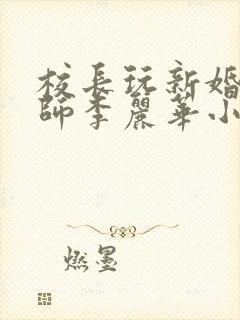 校長玩新婚
師李麗華小
燃墨